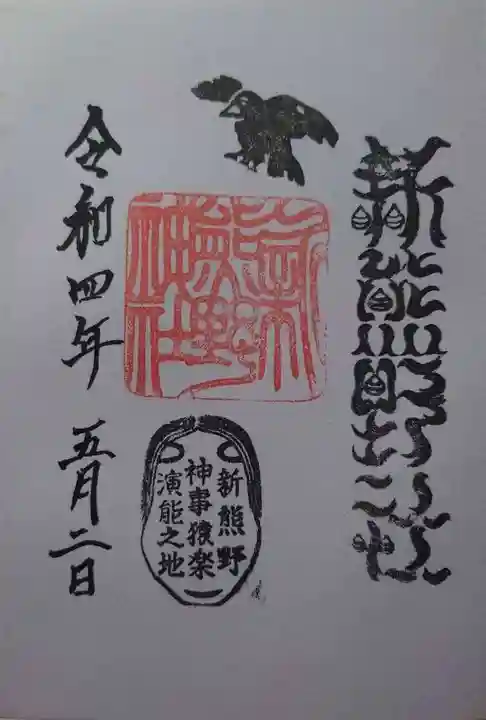 新熊野神社
新熊野
神事猿楽
演能之地
令和四年 五月二日